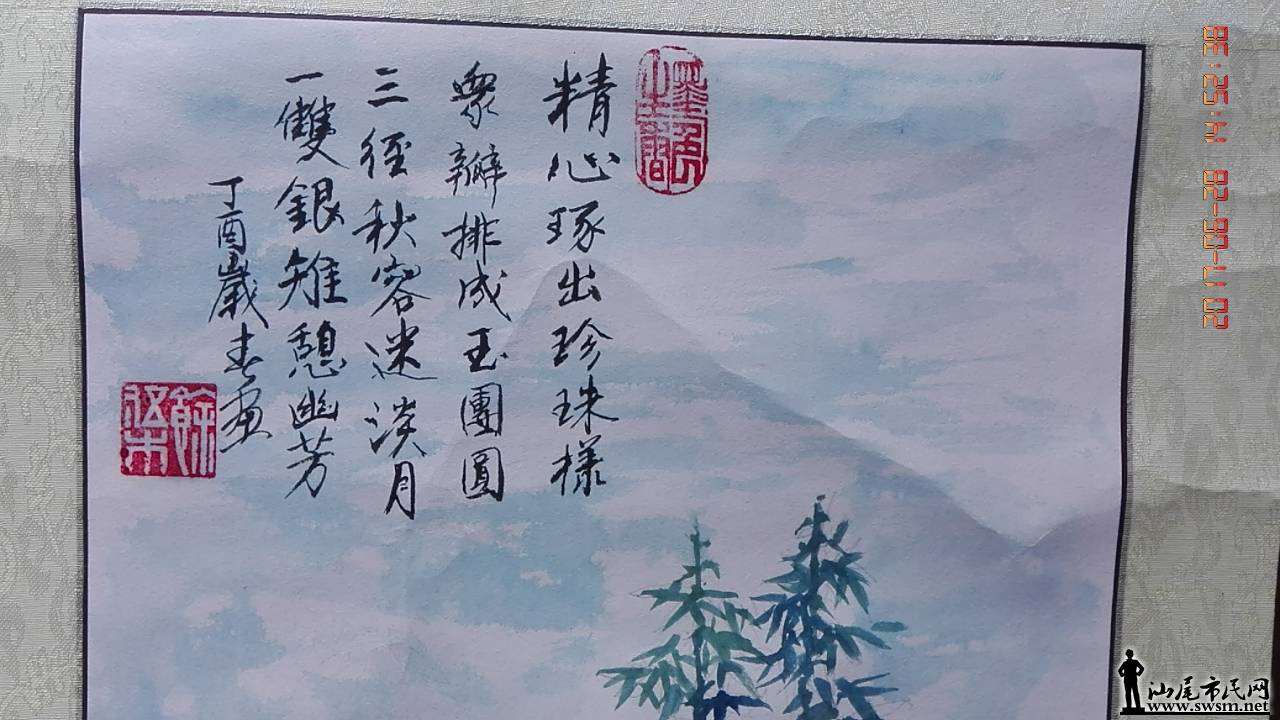 精心琢出珍珠樣
眾瓣排成玉團圓
三徑秋容迷淡月
一雙銀雉憩幽芳
丁酉歲春畫
2017-06-28 14:25:38
汕尾市民网
www.swsm.net